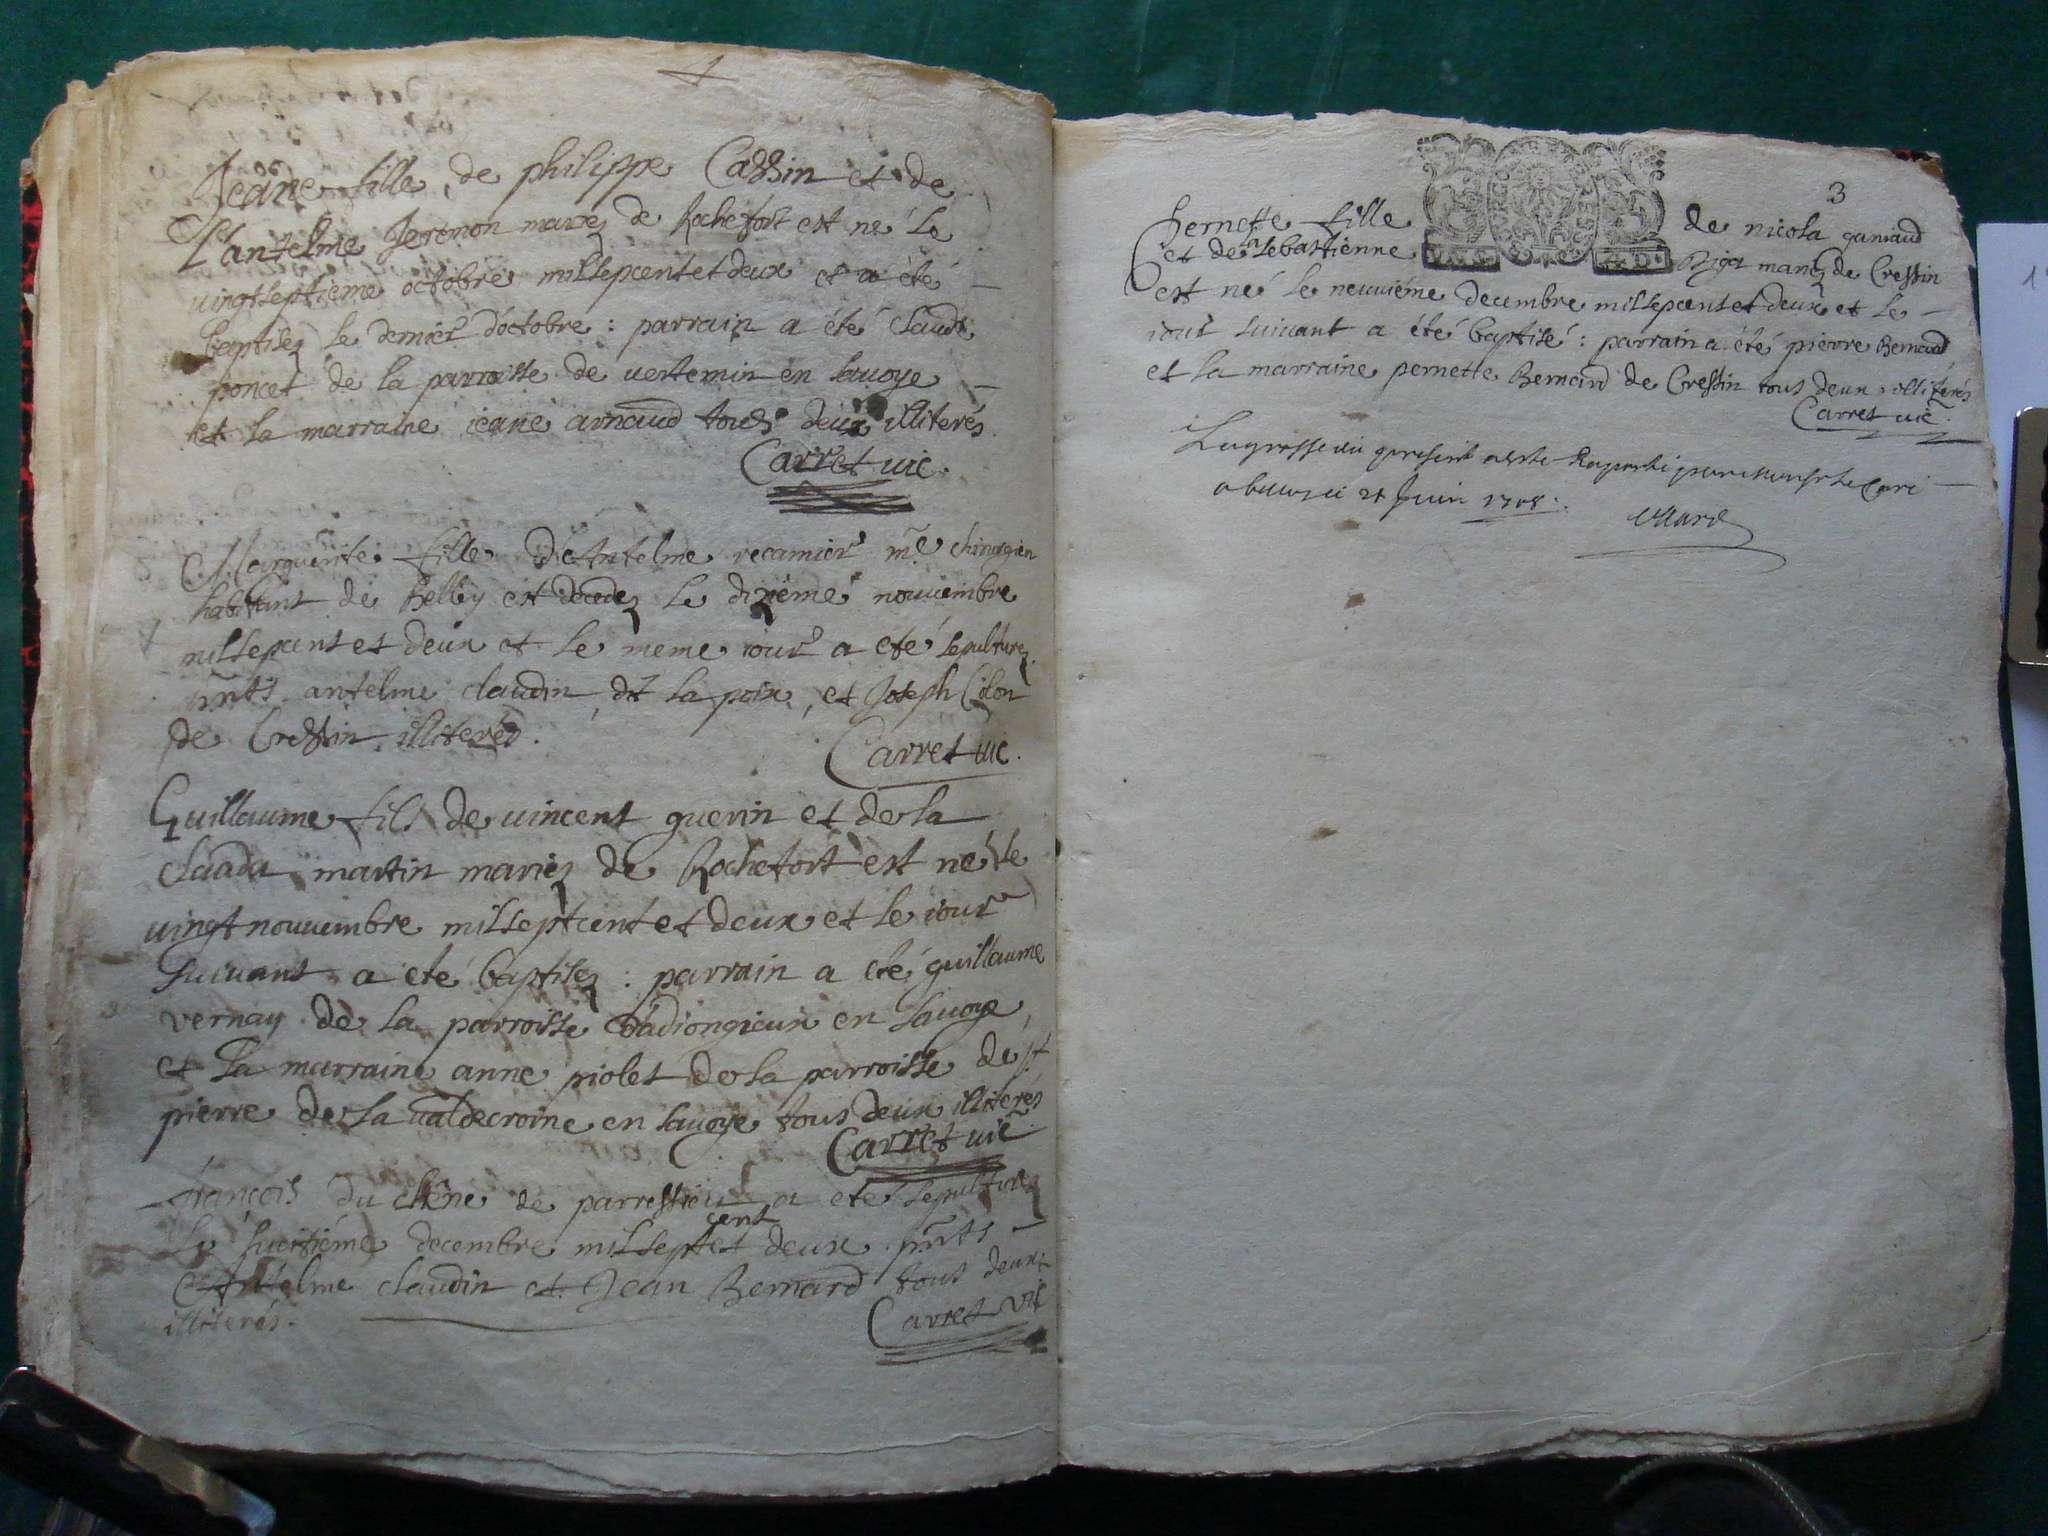 Jeane fille de philippe Cassin et de
l'antelme Jeremon mariez de Rochefort est né le
vingtseptieme octobre millepcent et deux et a été
baptisez le dernier d'octobre : parrain a été Claude
poncet de la parroisse de vertemin en savoye
et la marraine ieane arnaud tous deux illiterés
Carret vic.
Marguerite fille d'Antelme recamier me chirurgien
habitant de Belley est decedez le dixieme nouuembre
millepcent et deux et le meme iour a eté sepulturez
pnts antelme claudin dit la poix, et Joseph Cilon
de Cressin illiterés.
Carret vic.
Guillaume fils de vincent guerin et de la
clauda martin mariez de Rochefort est né le
vingt nouuembre millseptcent et deux et le iour
suivant a eté baptisez : parrain a eté guillaume
vernay de la parroisse d'adiongieux en savoye
et la marraine anne piolet de la parroisse de st
pierre de la valdecroine en savoye tous deux illiterés
Carret vic
françois du chêne de parressieu a eté sepulturez
le huitiéme decembre millsept cent et deux pnts
Antelme claudin et Jean Bernard tous deux
illiterés.
Carret vic
3
Pernette fille de nicola ganiaud
et de la sebastienne Riget mariez de Cressin
est né le neuuiéme decembre millepcent et deux et le
iour suivant a été baptisé : parrain a été pierre Bernard
et la marraine pernette Bernard de Cressin tous deux illiterés
Carret vic.
La grosse du present a este Raporté par
a belley ce 21 Juin 1708.